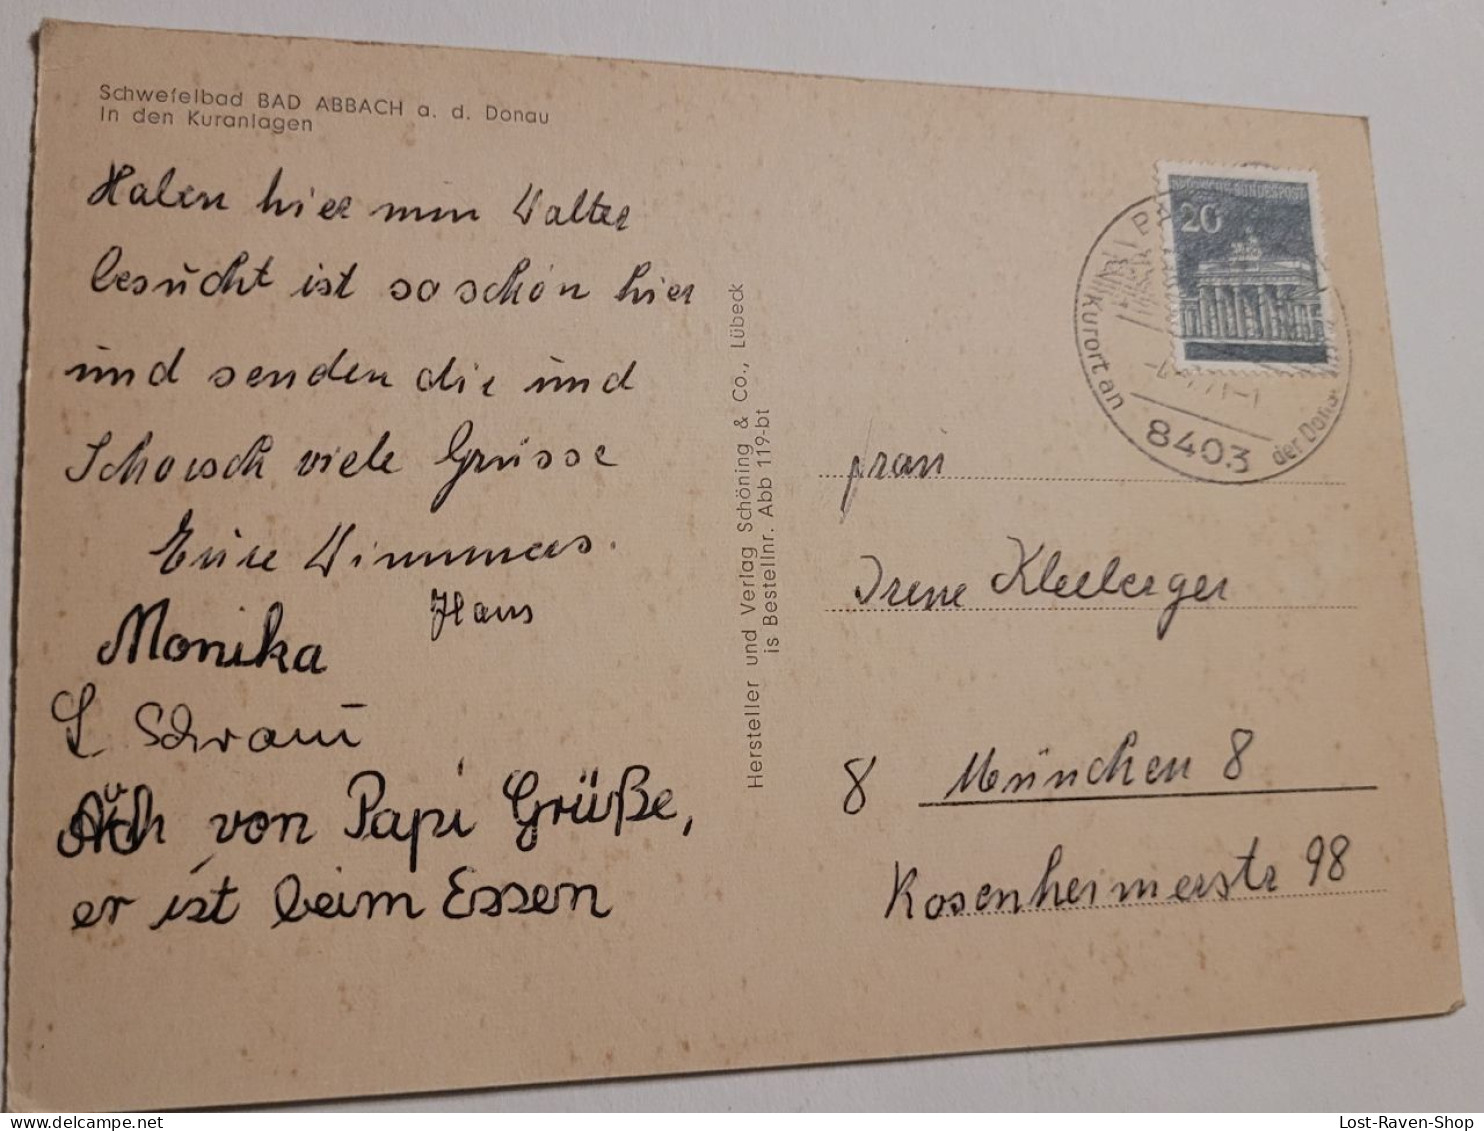 Schwefelbad BAD ABBACH a. d. Donau
In den Kuranlagen
Haben hier nun Walter
besucht ist so schön hier
und senden die und
Schorsch viele Grüsse
Eure Wimmers.
Hans
Monika
L Schram
Auch von Papi Grüße,
er ist beim Essen
Hersteller und Verlag Schöning & Co., Lübeck
is Bestellnr. Abb 119-bt
DEUTSCHE BUNDESPOST
20
Kurort an der Donau
8403
Frau
Irene Kleeberger
8 München 8
Rosenheimerstr 98
Lost-Raven-Shop